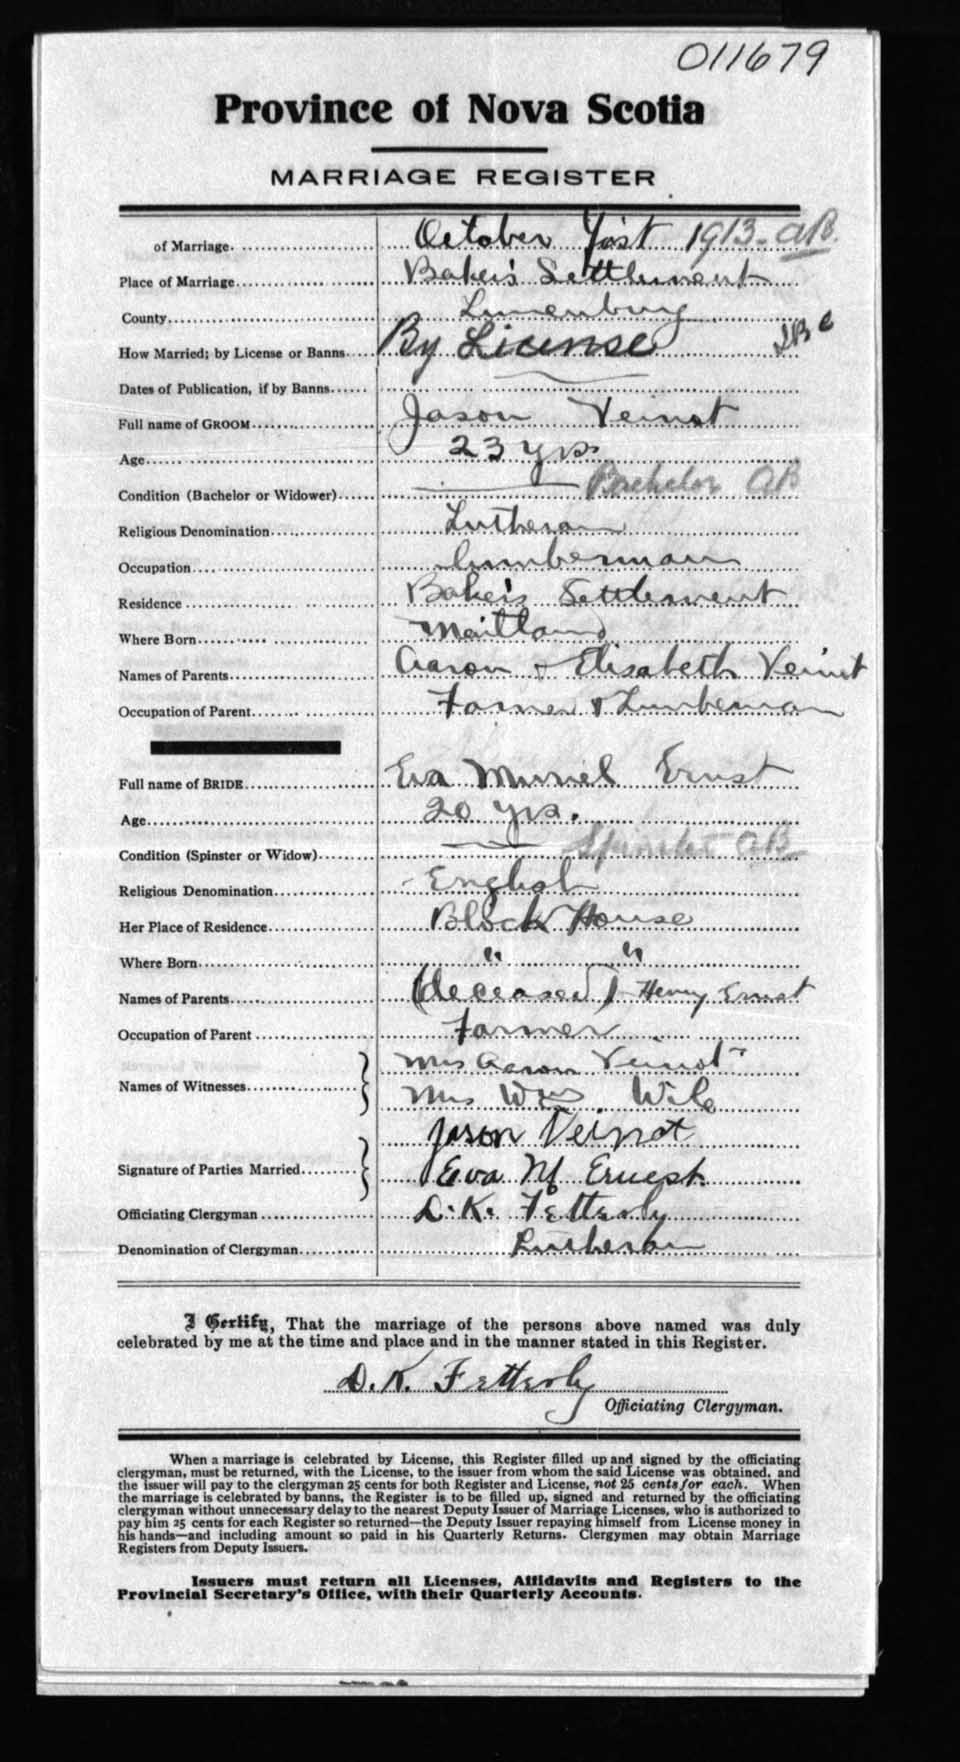 011679
Province of Nova Scotia
MARRIAGE REGISTER
of Marriage. October First 1913 - AB.
Place of Marriage Baker's Settlement
County Lunenburg
How Married; by License or Banns By License
Dates of Publication, if by Banns
Full name of GROOM Jason Veinot
Age 23 yrs
Condition (Bachelor or Widower) Bachelor AB
Religious Denomination Lutheran
Occupation lumberman
Residence Baker's Settlement
Where Born Maitland
Names of Parents Aaron & Elisabeth Veinot
Occupation of Parent Farmer & Lumberman
Full name of BRIDE Eva Muriel Ernst
Age 20 yrs.
Condition (Spinster or Widow) Spinster AB
Religious Denomination English
Her Place of Residence Block House
Where Born " "
Names of Parents (deceased) Henry Ernst
Occupation of Parent Farmer
Names of Witnesses Mrs Aaron Veinot
Mrs Wm Wile
Jason Veinot
Signature of Parties Married Eva M Ernest
Officiating Clergyman D. K. Fetterly
Denomination of Clergyman Lutheran
I Certify, That the marriage of the persons above named was duly
celebrated by me at the time and place and in the manner stated in this Register.
D. K. Fetterly
Officiating Clergyman.
When a marriage is celebrated by License, this Register filled up and signed by the officiating
clergyman, must be returned, with the License, to the issuer from whom the said License was obtained, and
the issuer will pay to the clergyman 25 cents for both Register and License, not 25 cents for each. When
the marriage is celebrated by banns, the Register is to be filled up, signed and returned by the officiating
clergyman without unnecessary delay to the nearest Deputy Issuer of Marriage Licenses, who is authorized to
pay him 25 cents for each Register so returned—the Deputy Issuer repaying himself from License money in
his hands—and including amount so paid in his Quarterly Returns. Clergymen may obtain Marriage
Registers from Deputy Issuers.
Issuers must return all Licenses, Affidavits and Registers to the
Provincial Secretary's Office, with their Quarterly Accounts.